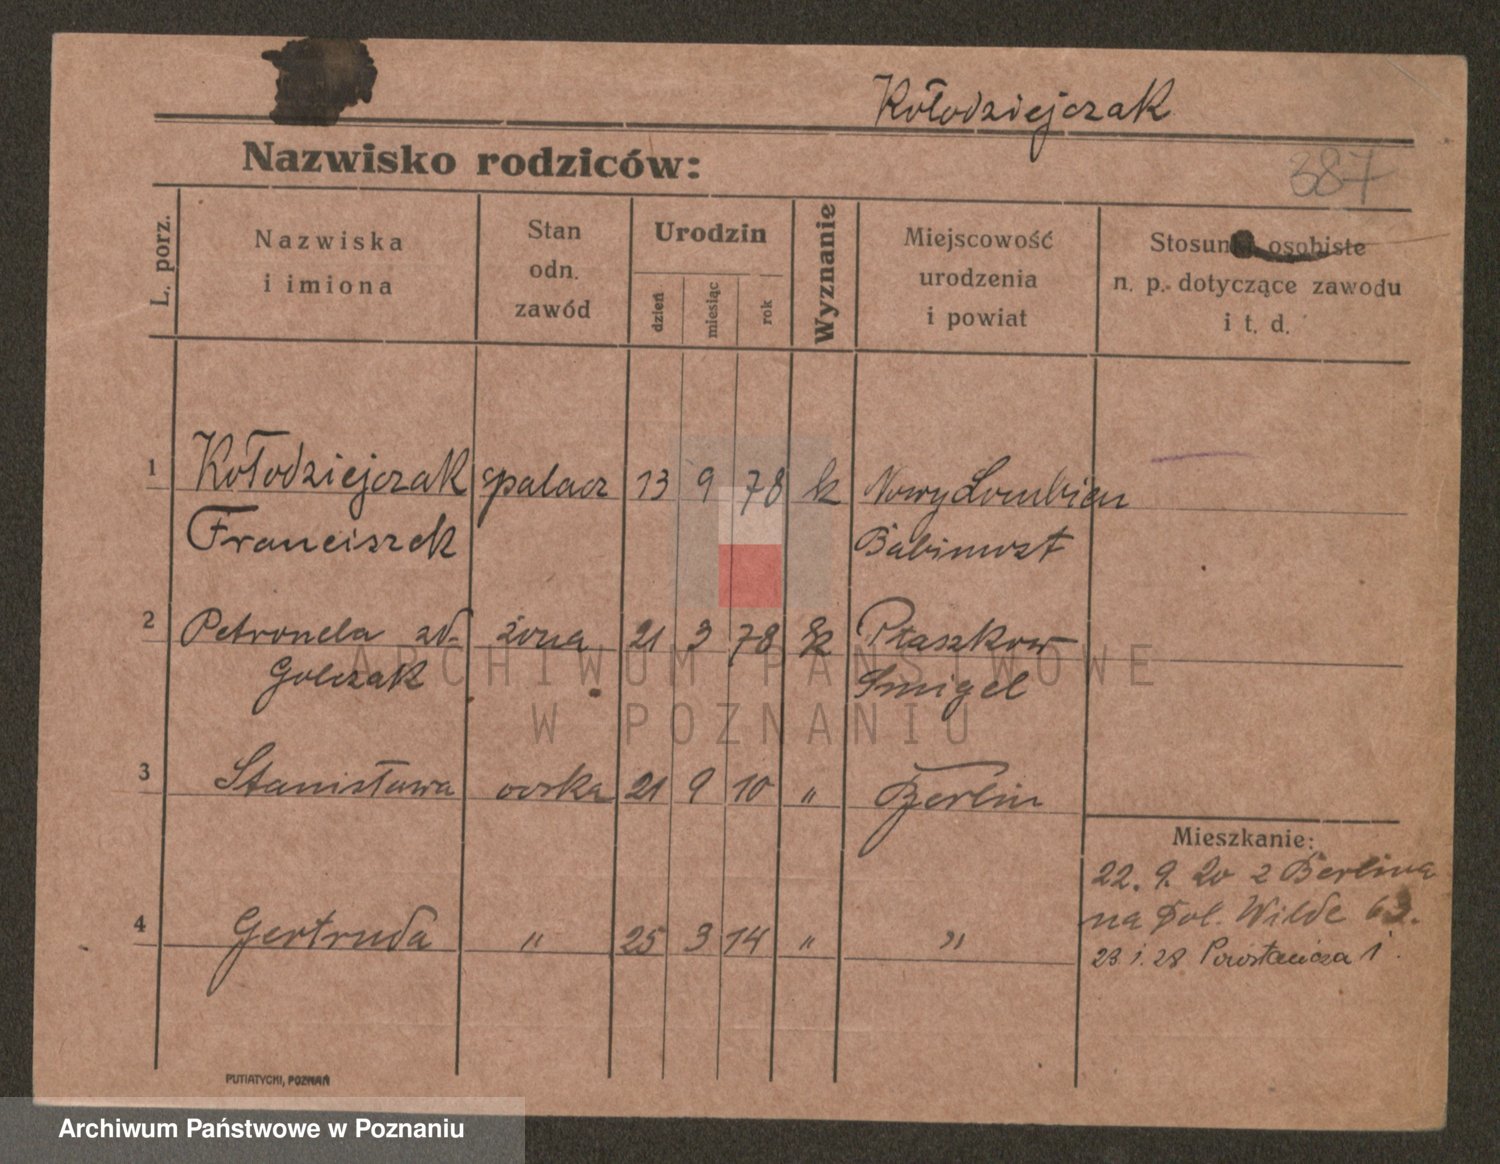 Kołodziejczak
Nazwisko rodziców:
387
L. porz.
Nazwiska
i imiona
Stan
odn.
zawód
Urodzin
dzień
miesiąc
rok
Wyznanie
Miejscowość
urodzenia
i powiat
Stosunki osobiste
n. p. dotyczące zawodu
i t. d.
1 Kołodziejczak spalacz 13 9 78 k Nowy
Franciszek Babimost
2 Petronela zd. żona 21 3 78 k Ptaszkow
Golczak Smigel
3 Stanisława córka 21 9 10 " Berlin
4 Gertruda " 25 3 14 " "
Mieszkanie:
22. 9. 20 z Berlina
na Dol. Wilde 63.
23. 1. 28 Powstańcza 1.
PUTIATYCKI, POZNAŃ
ARCHIWUM PAŃSTWOWE
W POZNANIU
Archiwum Państwowe w Poznaniu